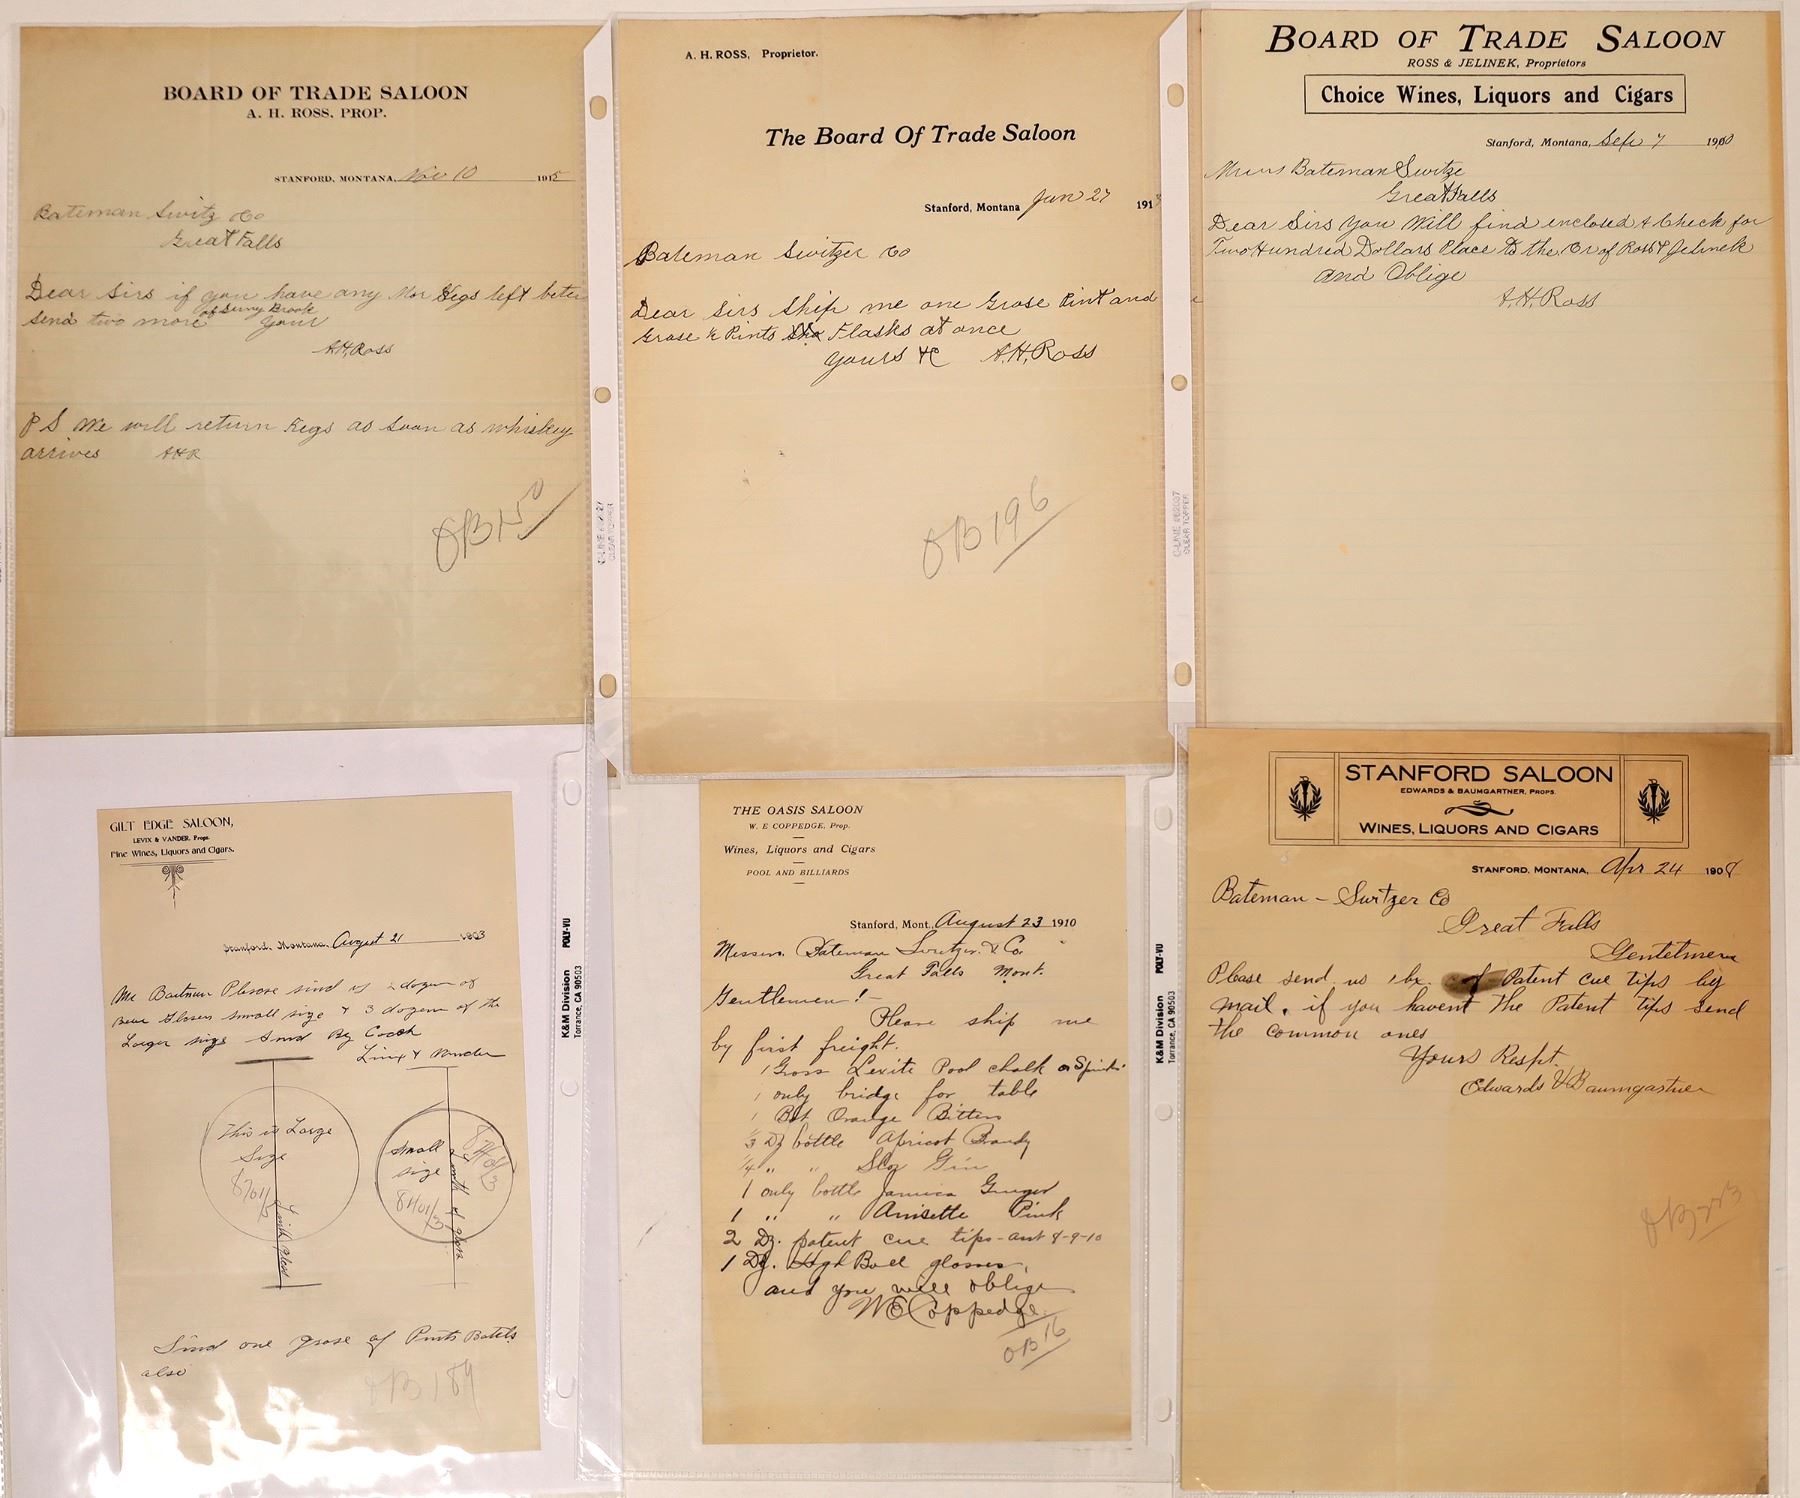 BOARD OF TRADE SALOON
A. H. ROSS, PROP.
STANFORD, MONTANA, Nov 10 1915
Bateman Switz Co
Great Falls
Dear Sirs if you have any Mor Kegs left beter
send two more of Suny Brook
Your
A.H. Ross
P S We will return Kegs as soon as whiskey
arrives AHR
OB150
A. H. ROSS, Proprietor.
The Board Of Trade Saloon
Stanford, Montana Jun 27 191
Bateman Switzer Co
Dear Sirs Ship me one Grose Pint and
Grose ½ Pints Flasks at once
Yours &c A.H. Ross
OB196
BOARD OF TRADE SALOON
ROSS & JELINEK, Proprietors
Choice Wines, Liquors and Cigars
Stanford, Montana, Sep 7 19
Bateman Switze
Great Falls
Dear Sirs You Will find enclosed A Check for
Two Hundred Dollars Place To the Cr of Ross & Jelinek
and Oblige
A.H. Ross
C-LINE #62037
CLEAR TOPPER
GILT EDGE SALOON,
LEVIX & VANDER, Props.
Fine Wines, Liquors and Cigars.
Stanford, Montana, August 21 1903
Mr Baitman Please sind us 2 dozen of
Bear Glases small size & 3 dozen of the
Larger size Sind By Coach
This is Large
Size
8701/5
small
size
8401/3
Sind one grose of Pints Botels
also
OB189
K&M Division POLY-VU
Torrance, CA 90503
THE OASIS SALOON
W. E COPPEDGE, Prop.
Wines, Liquors and Cigars
POOL AND BILLIARDS
Stanford, Mont. August 23 1910
Messrs. Bateman Switzer & Co.
Great Falls Mont.
Gentlemen!-
Please ship me
by first freight.
1 Gross Pool chalk or
1 only bridge for table
1 Bot Orange Bitters
Dz bottle Apricot Brandy
¼ " " Sloe Gin
1 only bottle Jamica Ginger
1 " " Anisette Pink
2 Dz. patent cue tips-
1 Dz. High Ball glasses,
and you will oblige
W E Coppedge.
OB16
K&M Division POLY-VU
Torrance, CA 90503
STANFORD SALOON
EDWARDS & BAUMGARTNER, PROPS.
WINES, LIQUORS AND CIGARS
STANFORD, MONTANA, Apr 24 1908
Bateman - Switzer Co
Great Falls
Gentelmen
Please send us 1 bx of Patent cue tips by
mail. if you havent the Patent tips send
the common ones
Yours Respt.
Edwards & Baumgartner